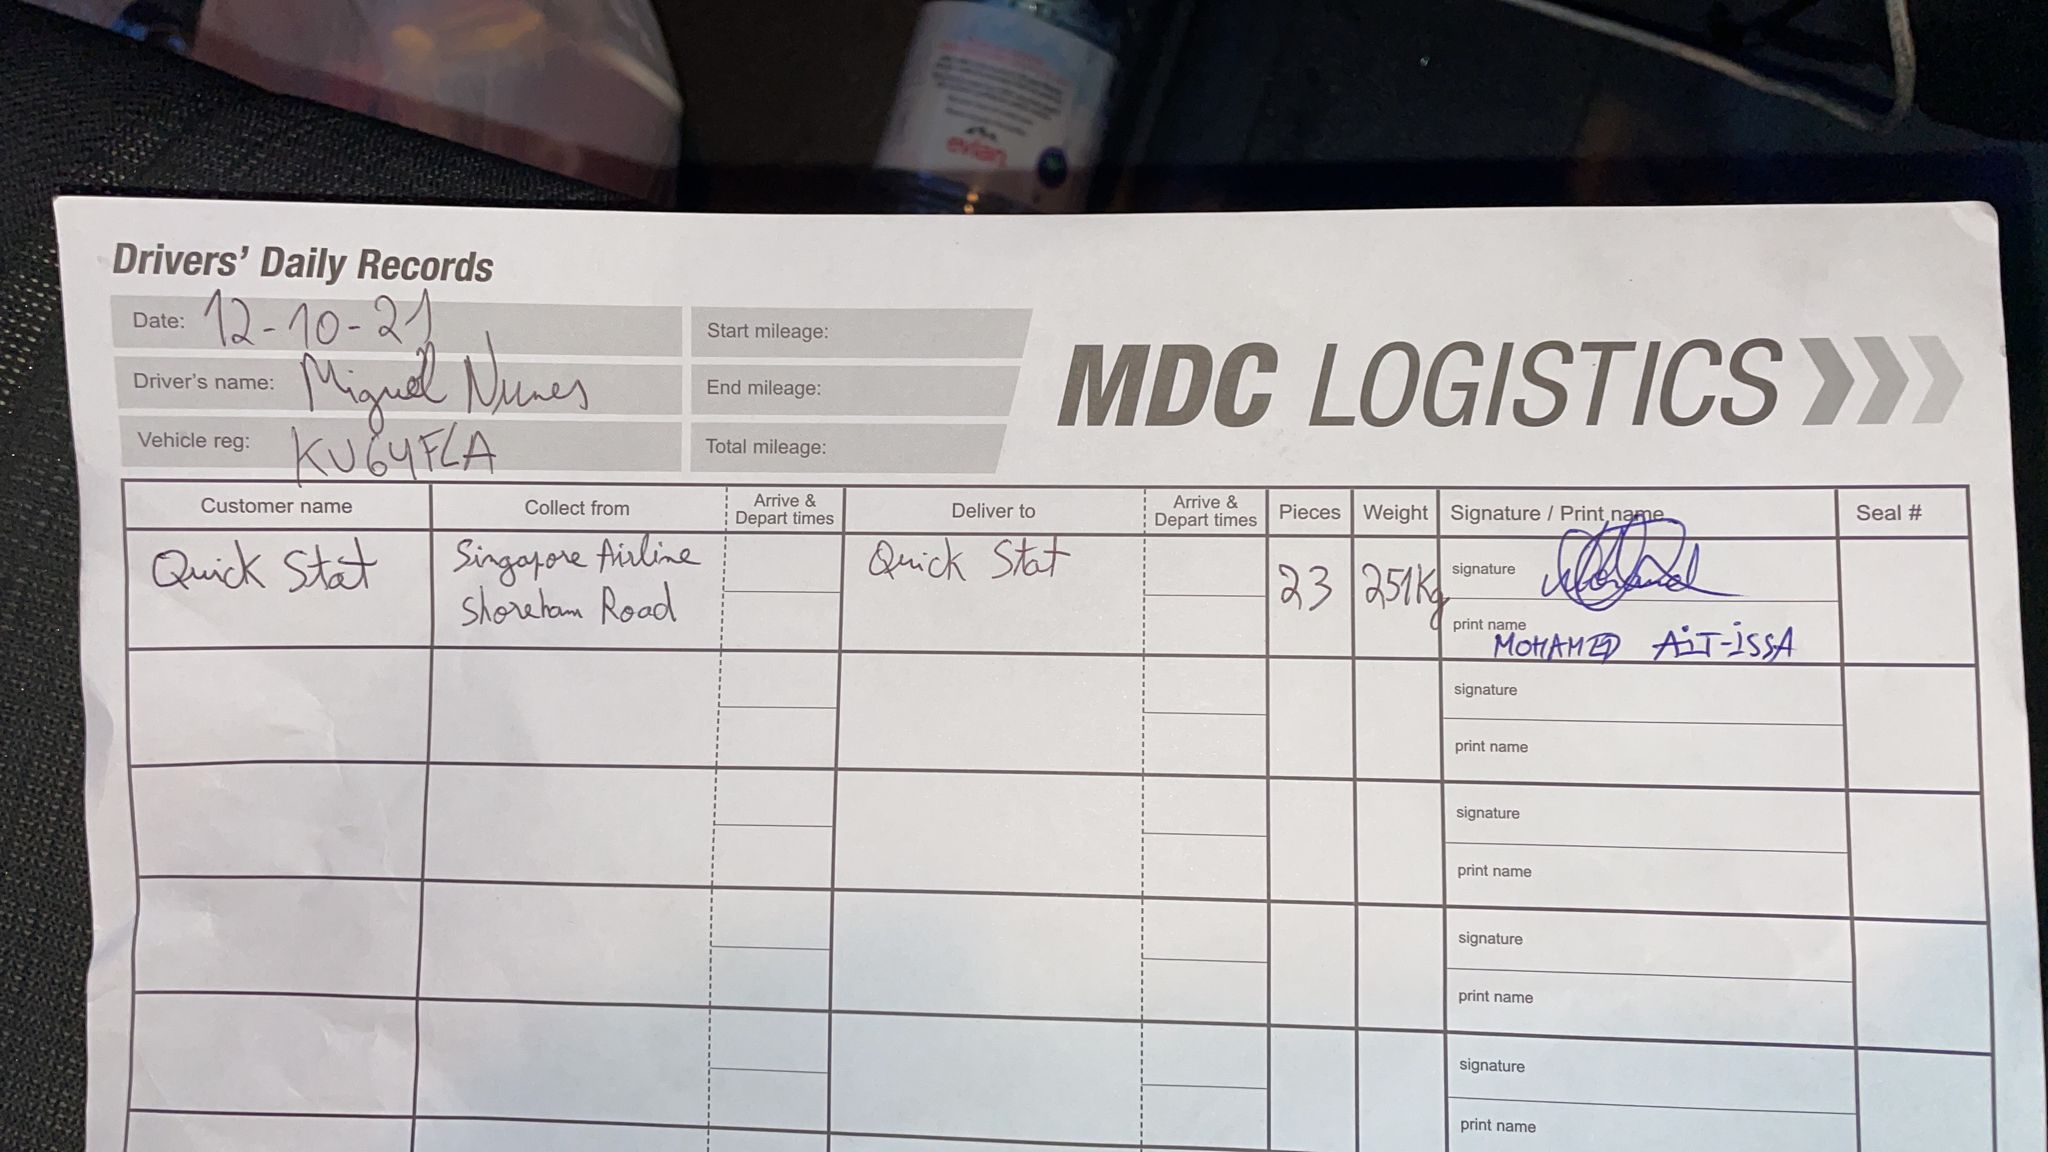 evian
Drivers' Daily Records
Date: 12-10-21
Start mileage:
Driver's name: Miguel Nunes
End mileage:
Vehicle reg: KV64FLA
Total mileage:
MDC LOGISTICS
Customer name
Collect from
Arrive &
Depart times
Deliver to
Arrive &
Depart times
Pieces
Weight
Signature / Print name
Seal #
Quick Stat
Singapore Airline
Shoreham Road
Quick Stat
23
251Kg
signature
print name
MOHAMED AiT-iSSA
signature
print name
signature
print name
signature
print name
signature
print name